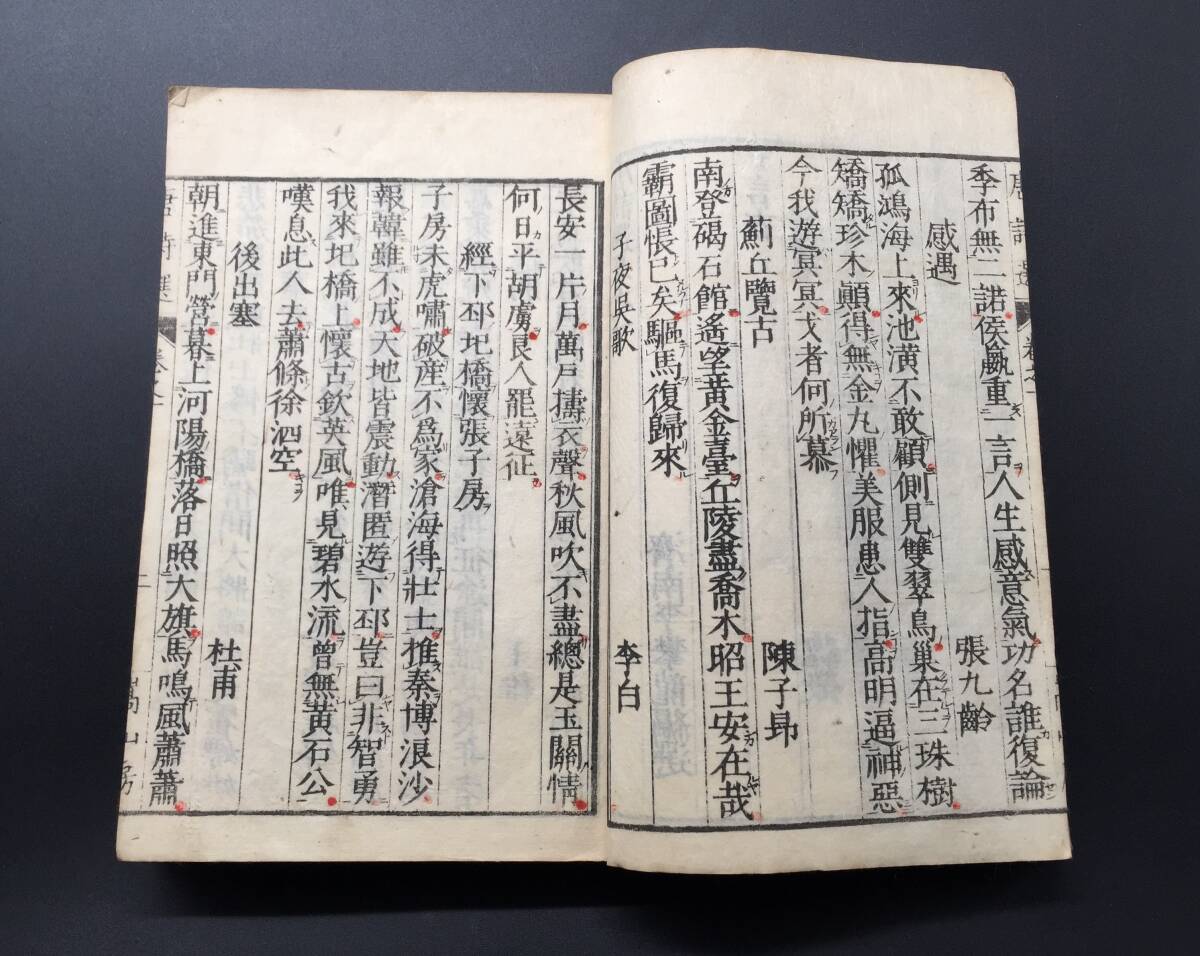 季布無二諾侯嬴重一言人生感意氣功名誰復論
感遇 張九齡
孤鴻海上來池潢不敢顧側見雙翠鳥巢在三珠樹
矯矯珍木巔得無金丸懼美服患人指高明逼神惡
今我遊冥冥弋者何所慕
薊丘覽古 陳子昂
南登碣石館遙望黃金臺丘陵盡喬木昭王安在哉
霸圖悵已矣驅馬復歸來
子夜吳歌 李白
長安一片月萬戶擣衣聲秋風吹不盡總是玉關情
何日平胡虜良人罷遠征
經下邳圯橋懷張子房
子房未虎嘯破産不爲家滄海得壯士椎秦博浪沙
報韓雖不成天地皆震動潛匿遊下邳豈曰非智勇
我來圯橋上懷古欽英風唯見碧水流曾無黃石公
嘆息此人去蕭條徐泗空
後出塞 杜甫
朝進東門營暮上河陽橋落日照大旗馬鳴風蕭蕭